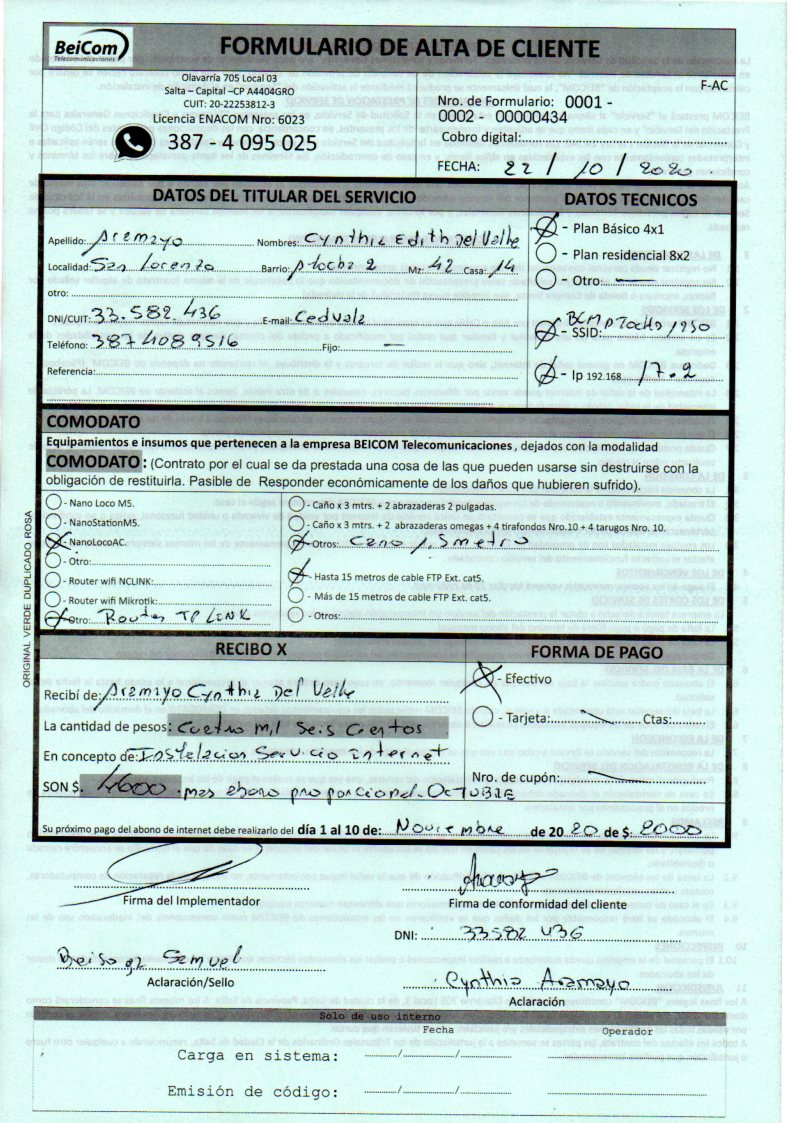 BeiCom
Telecomunicaciones
FORMULARIO DE ALTA DE CLIENTE
Olavarría 705 Local 03
Salta – Capital –CP A4404GRO
CUIT: 20-22253812-3
Licencia ENACOM Nro: 6023
387 - 4 095 025
F-AC
Nro. de Formulario: 0001 -
0002 - 00000434
Cobro digital:
FECHA: 22 / 10 / 2020
DATOS DEL TITULAR DEL SERVICIO
Apellido: Aramayo Nombres: Cynthia Edith Del Valle
Localidad: San Lorenzo Barrio: ptocha 2 Mz: 42 Casa: 14
otro:
DNI/CUIT: 33.582.436 E-mail: Cedvala
Teléfono: 387 4089516 Fijo: —
Referencia:
DATOS TECNICOS
- Plan Básico 4x1
- Plan residencial 8x2
- Otro: —
- SSID: BCMPTOCHO1950
- Ip 192.168. 17.2
COMODATO
Equipamientos e insumos que pertenecen a la empresa BEICOM Telecomunicaciones, dejados con la modalidad
COMODATO : (Contrato por el cual se da prestada una cosa de las que pueden usarse sin destruirse con la
obligación de restituirla. Pasible de Responder económicamente de los daños que hubieren sufrido).
- Nano Loco M5.
- NanoStationM5.
- NanoLocoAC.
- Otro:
- Router wifi NCLINK:
- Router wifi Mikrotik:
Otro: Router TP LINK
- Caño x 3 mtrs. + 2 abrazaderas 2 pulgadas.
- Caño x 3 mtrs. + 2 abrazaderas omegas + 4 tirafondos Nro.10 + 4 tarugos Nro. 10.
Otros: Cano 1,5 metro
- Hasta 15 metros de cable FTP Ext. cat5.
- Más de 15 metros de cable FTP Ext. cat5.
- Otros:
ORIGINAL VERDE DUPLICADO ROSA
RECIBO X
Recibí de: Aramayo Cynthia Del Valle
La cantidad de pesos: Cuatro mil Seis Cientos
En concepto de: Instalacion Servicio internet
SON $. 4600 .mas abono proporcional-OCTUBRE
FORMA DE PAGO
- Efectivo
- Tarjeta: Ctas:
Nro. de cupón:
Su próximo pago del abono de internet debe realizarlo del día 1 al 10 de: Noviembre de 20 20 de $: 2000
Firma del Implementador
Firma de conformidad del cliente
DNI: 33582 436
Samuel
Aclaración/Sello
Cynthia Aramayo
Aclaración
Solo de uso interno
Fecha Operador
Carga en sistema: / /
Emisión de código: / /